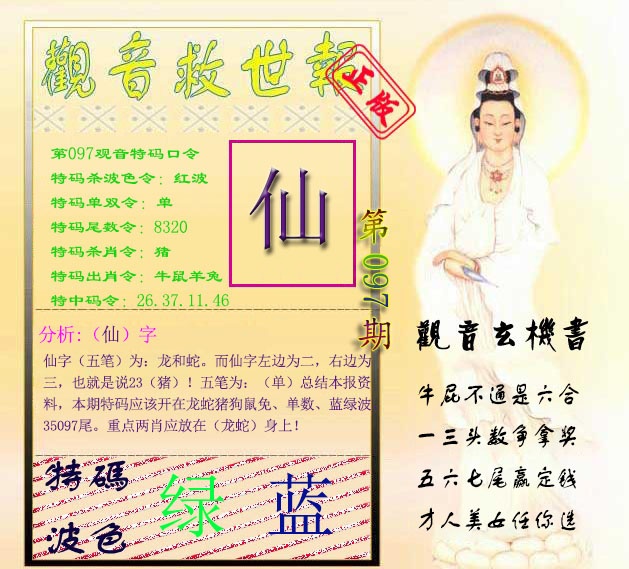 觀音救世報
正版
第097观音特码口令
特码杀波色令：红波
特码单双令：单
特码尾数令：8320
特码杀肖令：猪
特码出肖令：牛鼠羊兔
特中码令：26.37.11.46
仙
第097期
分析:（仙）字
仙字（五笔）为：龙和蛇。而仙字左边为二，右边为
三，也就是说23（猪）！五笔为：（单）总结本报资
料，本期特码应该开在龙蛇猪狗鼠兔、单数、蓝绿波
35097尾。重点两肖应放在（龙蛇）身上！
特碼
波色
绿 蓝
觀音玄機書
牛屁不通是六合
一三头数争拿奖
五六七尾赢定钱
才人美女任你选